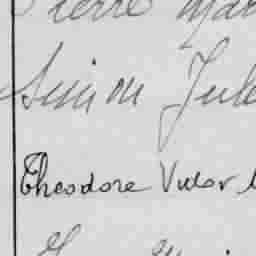 Pierre Mar
Simon Jule
Theodore Victor